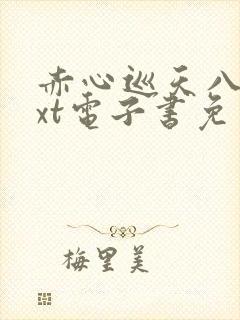 赤心巡天八
xt電子書免
梅里美